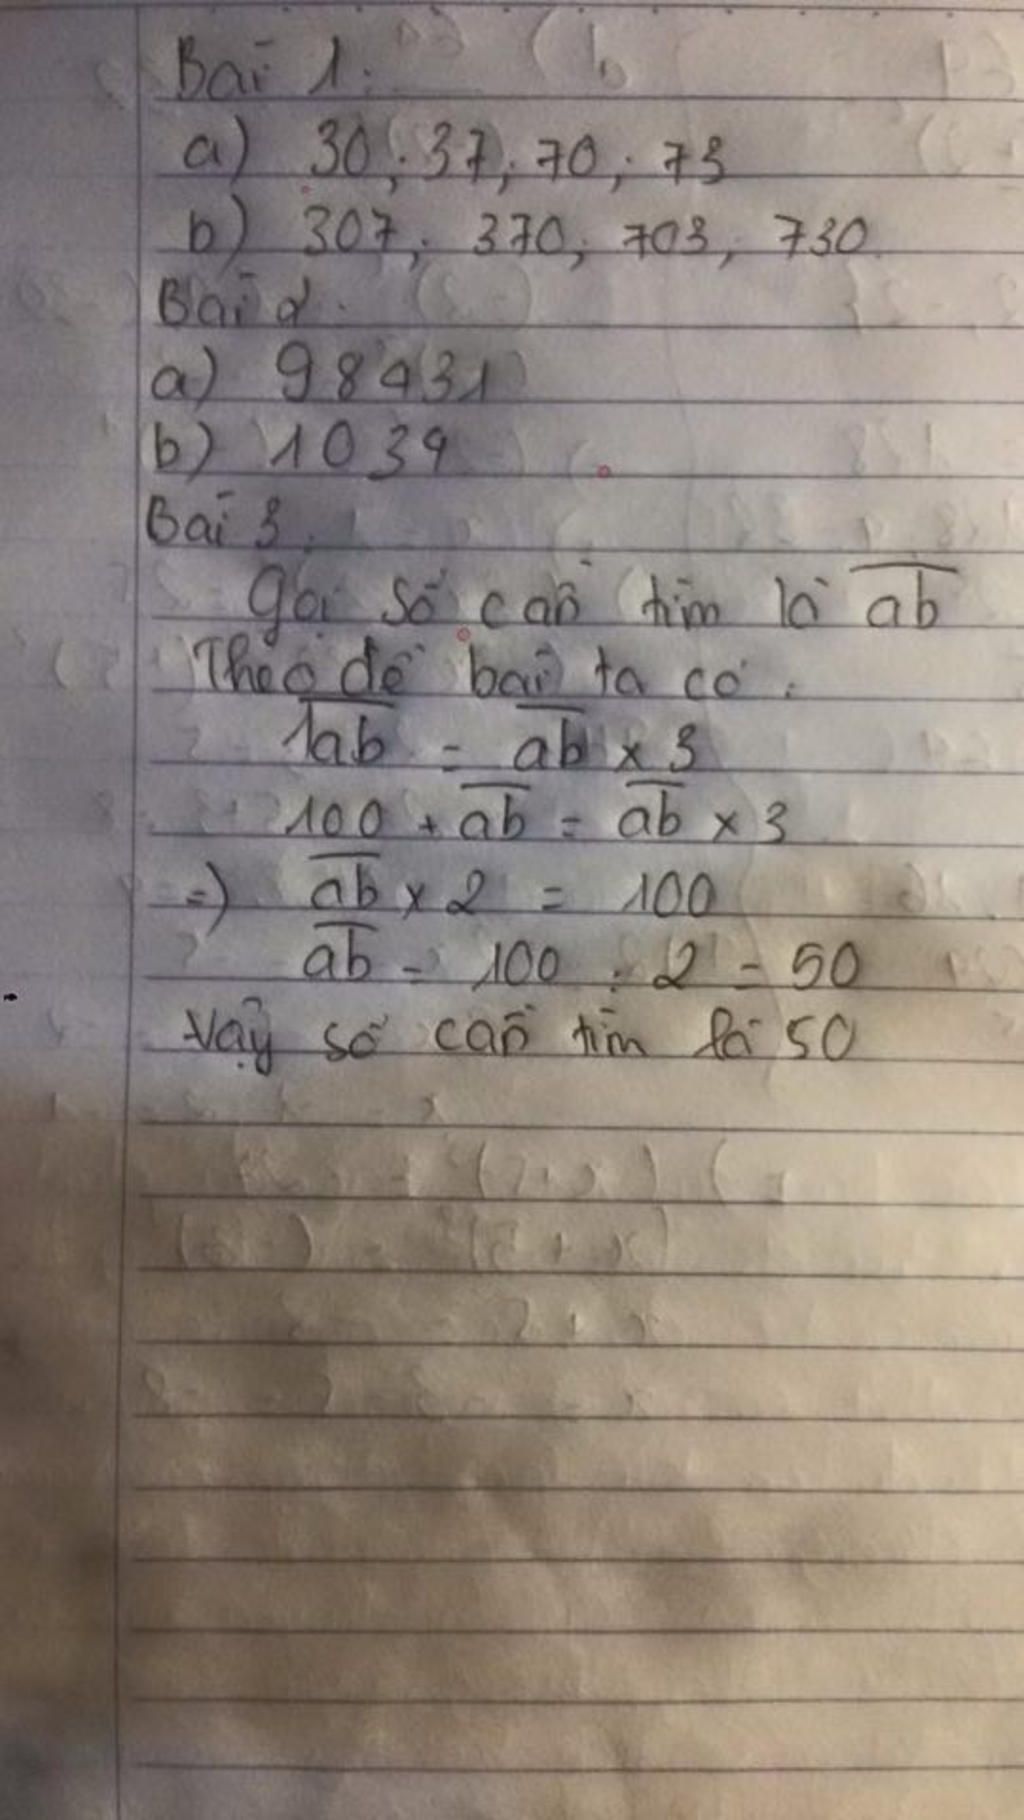 Bài 1:
a) 30; 37; 70; 73
b) 307; 370; 703; 730
Bài 2.
a) 98431
b) 1034
Bài 3.
gọi số cần tìm là ab
Theo đề bài ta có:
1ab = ab × 3
100 + ab = ab × 3
=) ab × 2 = 100
ab = 100 : 2 = 50
Vậy số cần tìm là 50